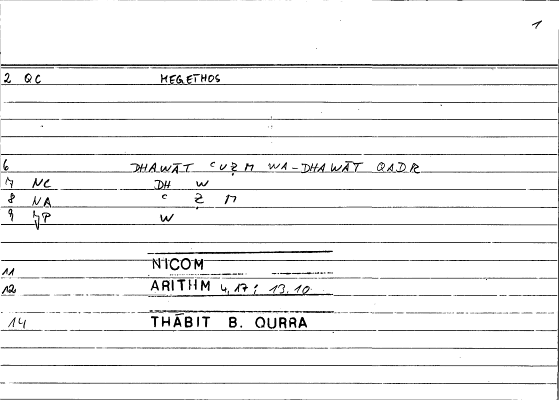 1
2 QC MEGETHOS
6 DHAWĀT ʿUẒM WA-DHAWĀT QADR
7 NC DH W
8 NA ʿ Ẓ M
9 NP W
11 NICOM
12 ARITHM 4,17; 13,10
14 THĀBIT B. QURRA